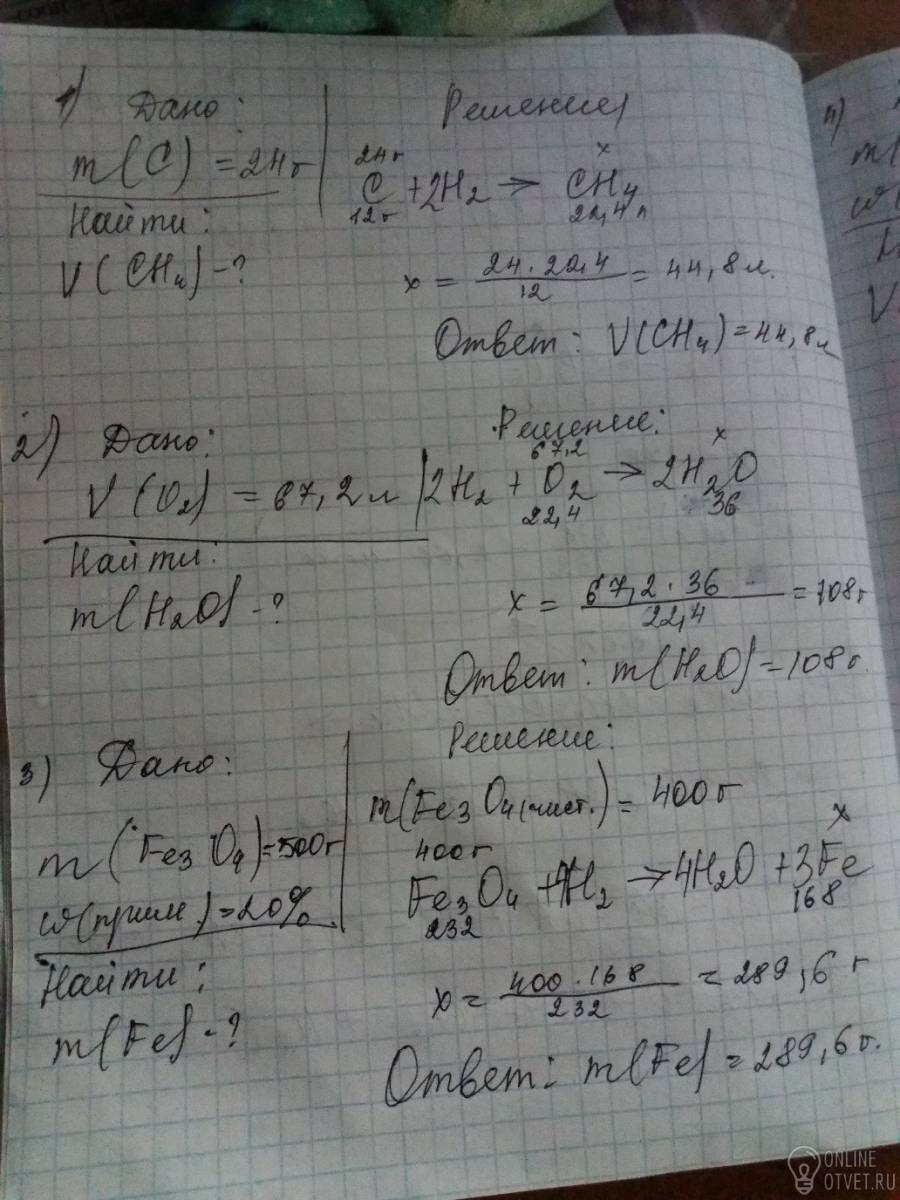 1) Дано:
m(C) = 24г
Найти:
V(CH4) - ?
Решение
24г x
C + 2H2 → CH4
12г 22,4л
x = 24 · 22,4 / 12 = 44,8л.
Ответ: V(CH4) = 44,8л
2) Дано:
V(O2) = 67,2л
Найти:
m(H2O) - ?
Решение:
67,2 x
2H2 + O2 → 2H2O
22,4 36
x = 67,2 · 36 / 22,4 = 108г
Ответ: m(H2O) = 108г.
3) Дано:
m(Fe3O4) = 500г
w(прим) = 20%.
Найти:
m(Fe) - ?
Решение:
m(Fe3O4(чист.) = 400г
400г x
Fe3O4 + 4H2 → 4H2O + 3Fe
232 168
x = 400 · 168 / 232 = 289,6 г
Ответ: m(Fe) = 289,6г.
4)
m(
w(
V
ONLINE
OTVET.RU